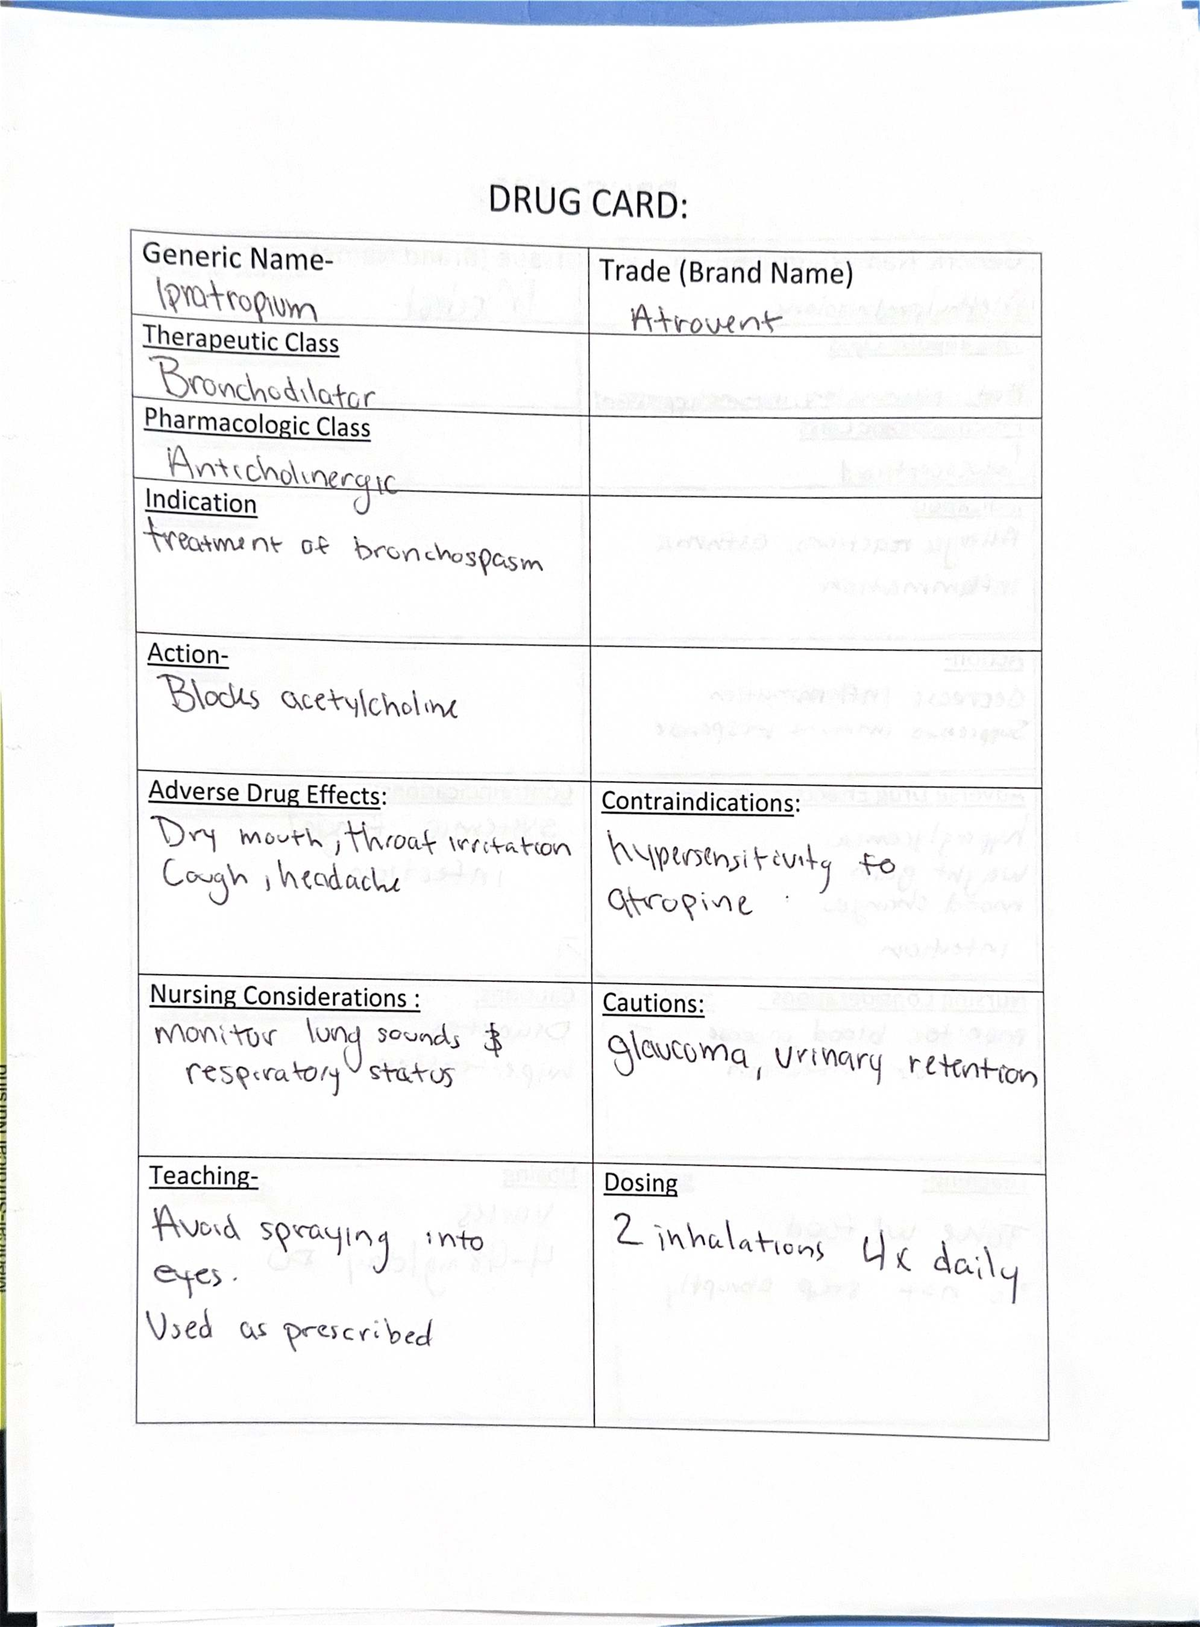 DRUG CARD:
Generic Name-
Ipratropium
Trade (Brand Name)
Atrovent
Therapeutic Class
Bronchodilator
Pharmacologic Class
Anticholinergic
Indication
treatment of bronchospasm
Action-
Blocks acetylcholine
Adverse Drug Effects:
Dry mouth, throat irritation
Cough, headache
Contraindications:
hypersensitivity to
atropine
Nursing Considerations :
monitor lung sounds &
respiratory status
Cautions:
glaucoma, urinary retention
Teaching-
Avoid spraying into
eyes.
Used as prescribed
Dosing
2 inhalations 4x daily
Medical-Surgical Nursing